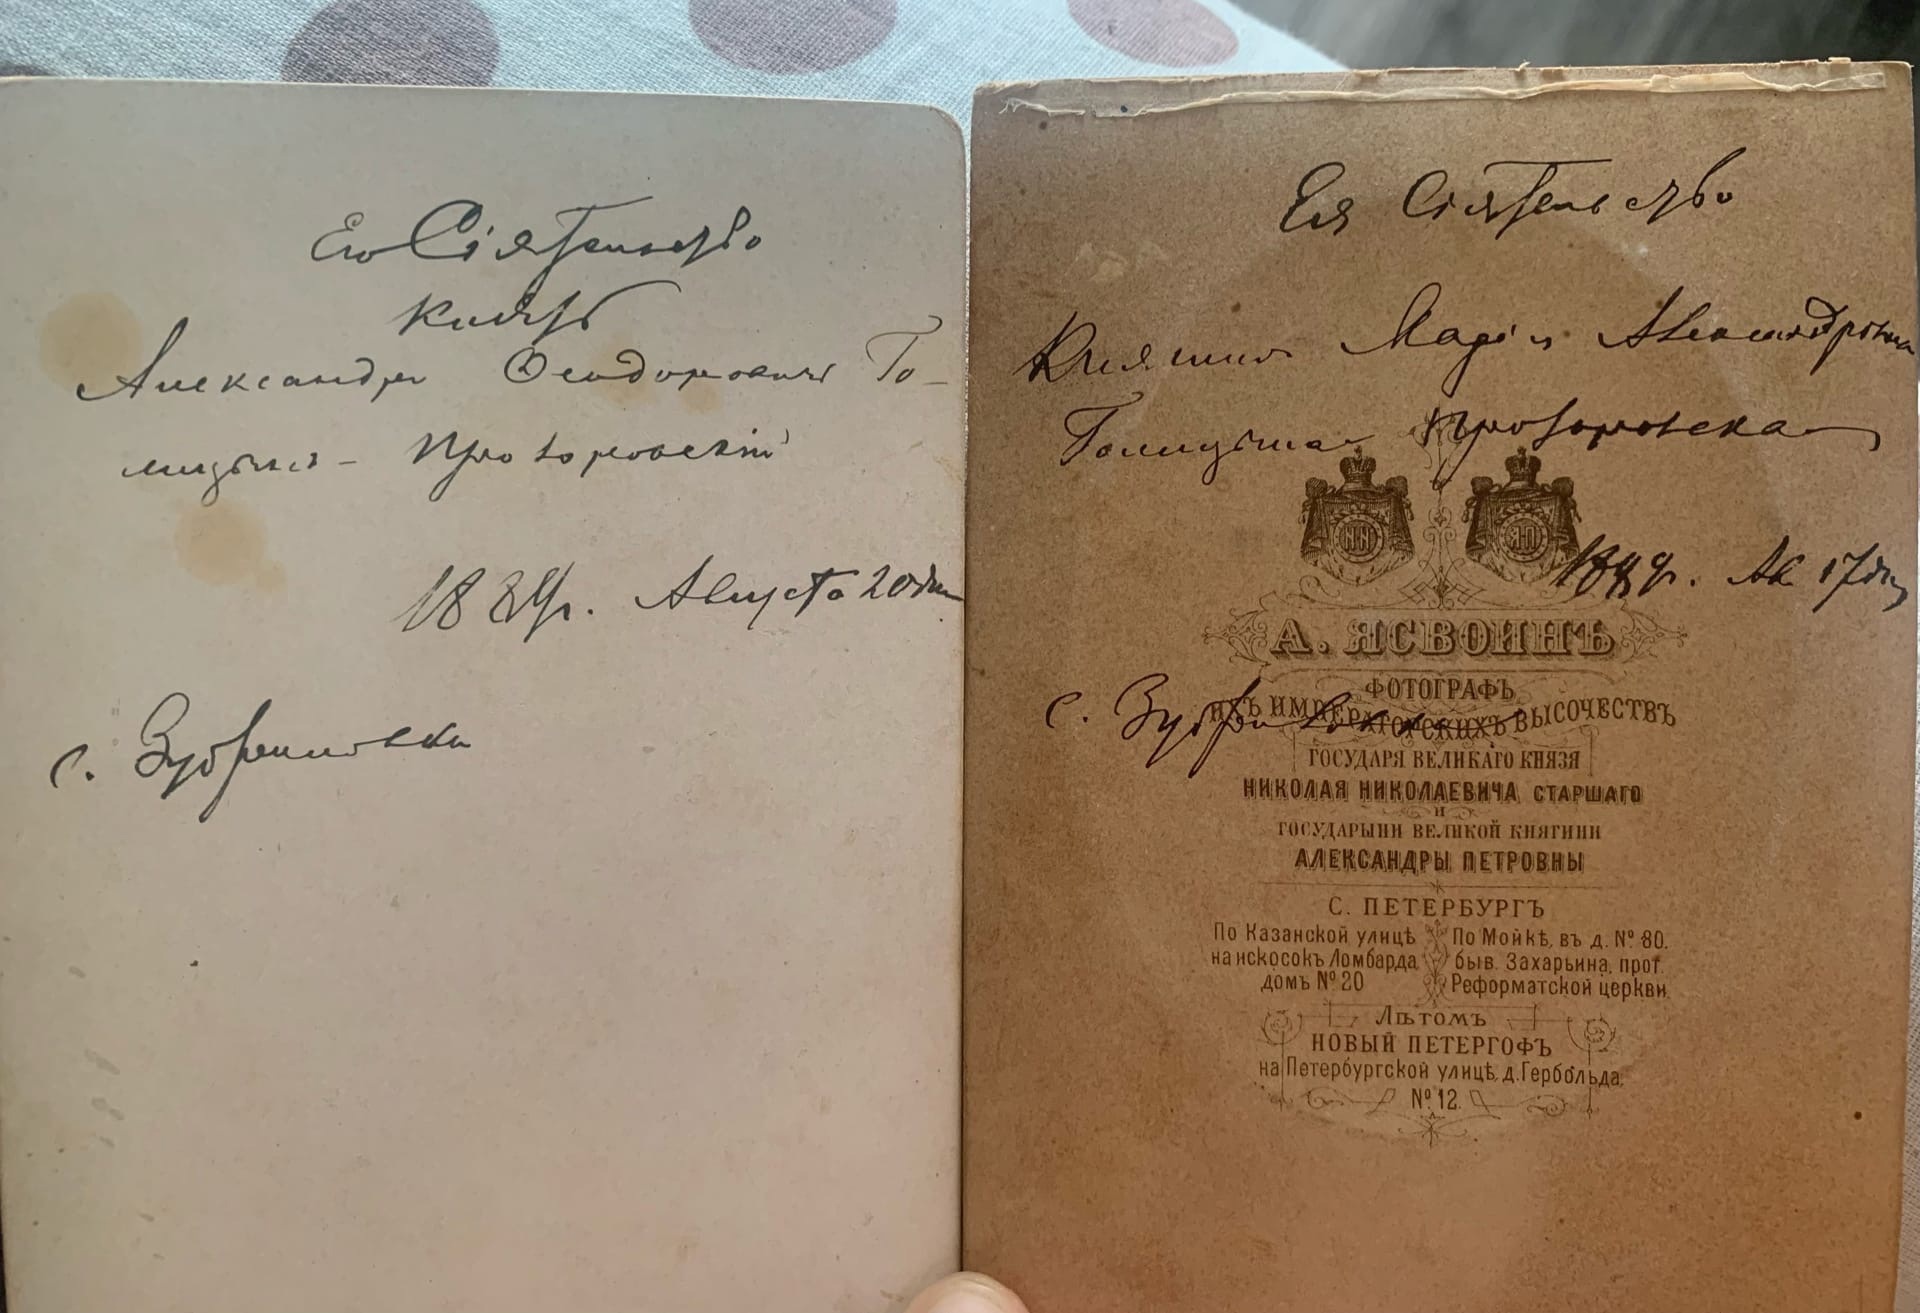 Его Сіятельство
Князь
Александръ Ѳеодоровичъ Го-
лицынъ – Прозоровскій
1889г. Августа 20 дня
с. Зубриловка
Ея Сіятельство
Княгиня Марія Александровна
Голицына Прозоровская
1889г. Ав 17 дня
А. ЯСВОИНЪ
ФОТОГРАФЪ
с. Зубриловка
ИХЪ ИМПЕРАТОРСКИХЪ ВЫСОЧЕСТВЪ
ГОСУДАРЯ ВЕЛИКАГО КНЯЗЯ
НИКОЛАЯ НИКОЛАЕВИЧА СТАРШАГО
И
ГОСУДАРЫНИ ВЕЛИКОЙ КНЯГИНИ
АЛЕКСАНДРЫ ПЕТРОВНЫ
С. ПЕТЕРБУРГЪ
По Казанской улицѣ
на искосокъ Ломбарда
домъ № 20
По Мойкѣ, въ д. № 80.
быв. Захарьина, прот.
Реформатской церкви
Лѣтомъ
НОВЫЙ ПЕТЕРГОФЪ
на Петербургской улицѣ, д. Гербольда,
№ 12.